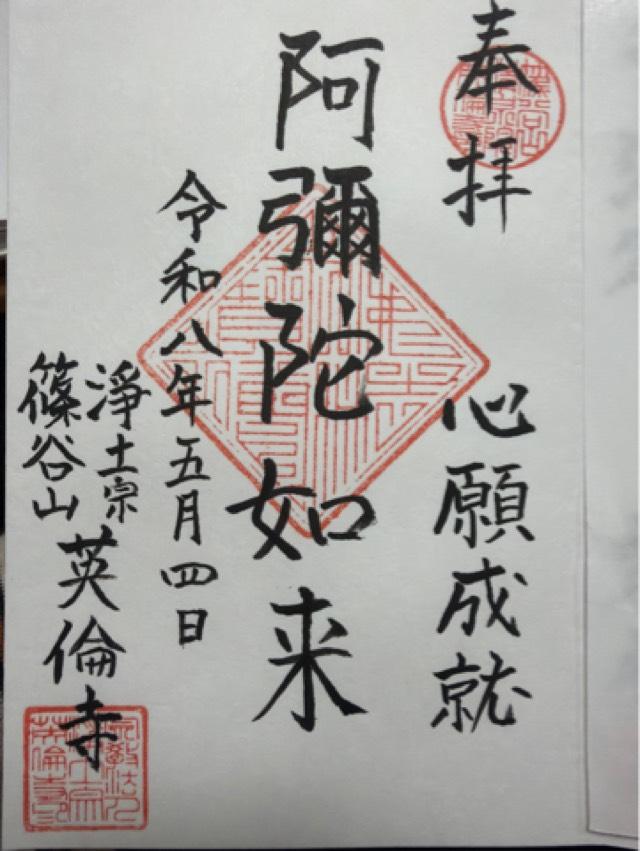 奉拝
心願成就
阿彌陀如来
令和八年五月四日
淨土宗
篠谷山
英倫寺